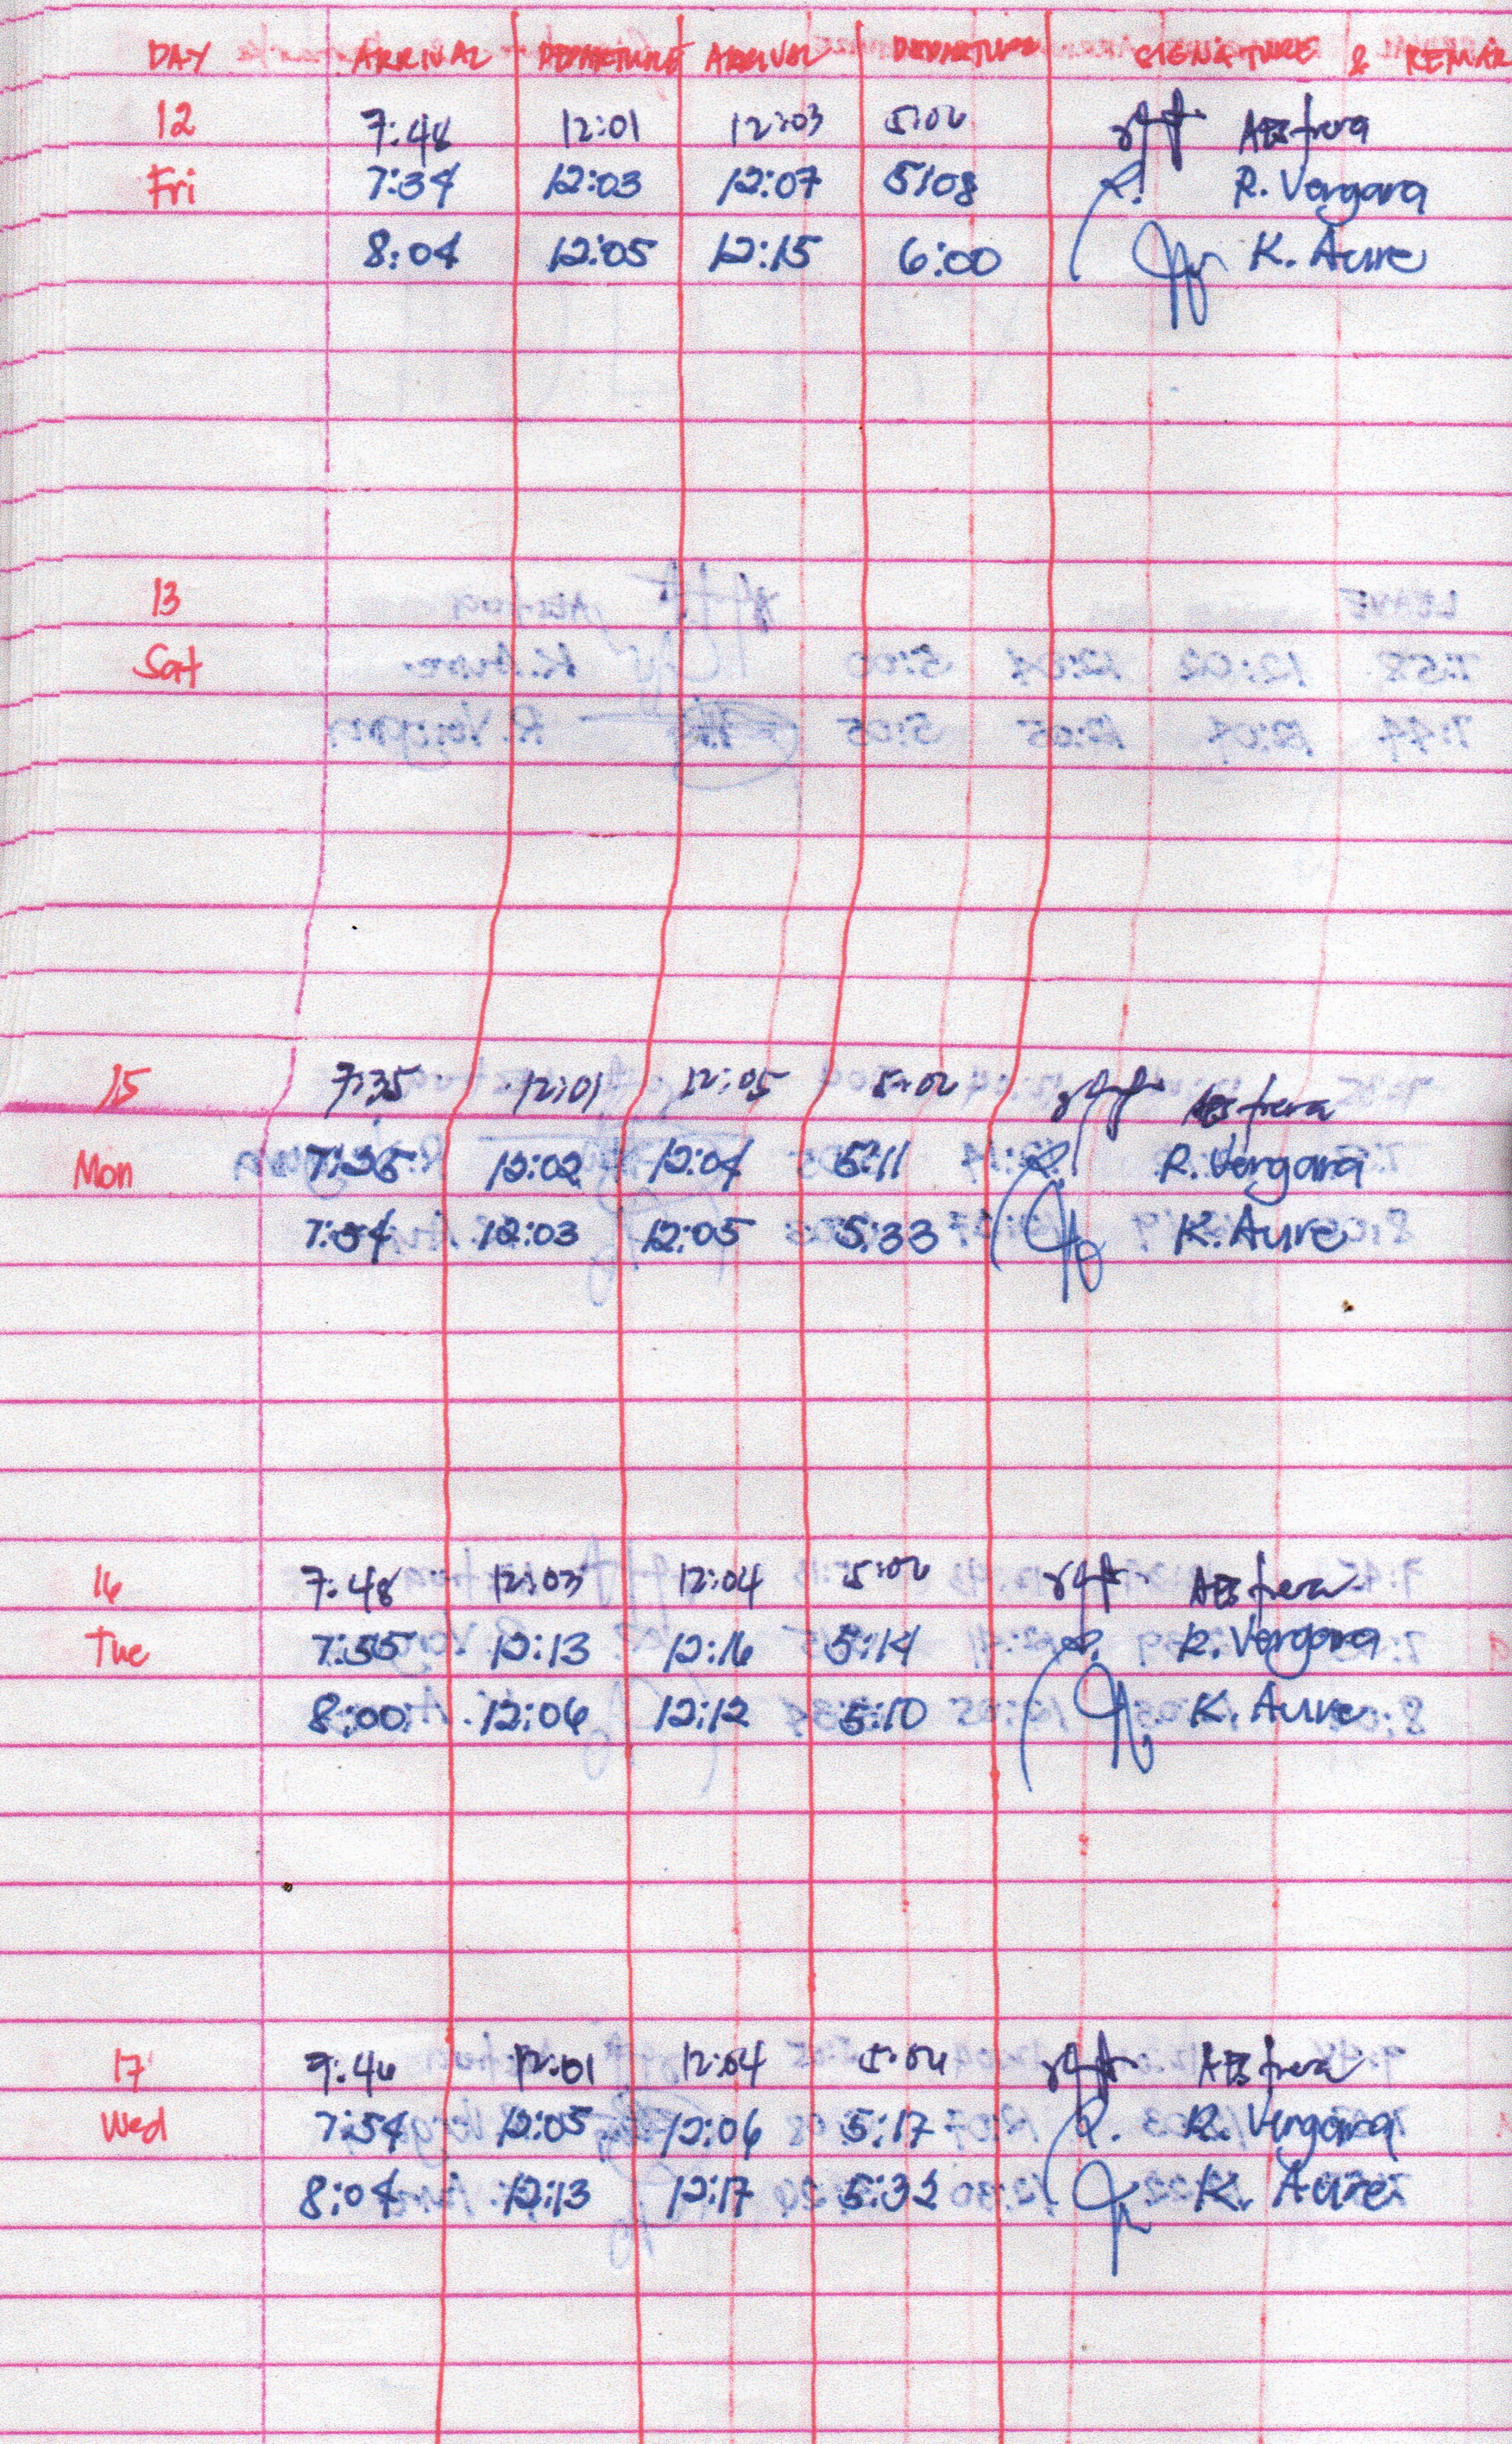 DAY ARRIVAL DEPARTURE ARRIVAL DEPARTURE SIGNATURE & REMAR
12 7:48 12:01 12:03 5:06
Fri 7:34 12:03 12:07 5:08 R. Vergara
8:04 12:05 12:15 6:00 K. Aure
13
Sat
15 7:35 12:01 12:05 5:06
Mon 7:35 12:02 12:04 5:11 R. Vergara
7:54 12:03 12:05 5:33 K. Aure
16 7:48 12:03 12:04 5:06
Tue 7:55 12:13 12:16 5:14 R. Vergara
8:00 12:06 12:12 5:10 K. Aure
17 7:46 12:01 12:04 5:04
Wed 7:54 12:05 12:06 5:17 R. Vergara
8:04 12:13 12:17 5:32 K. Aure